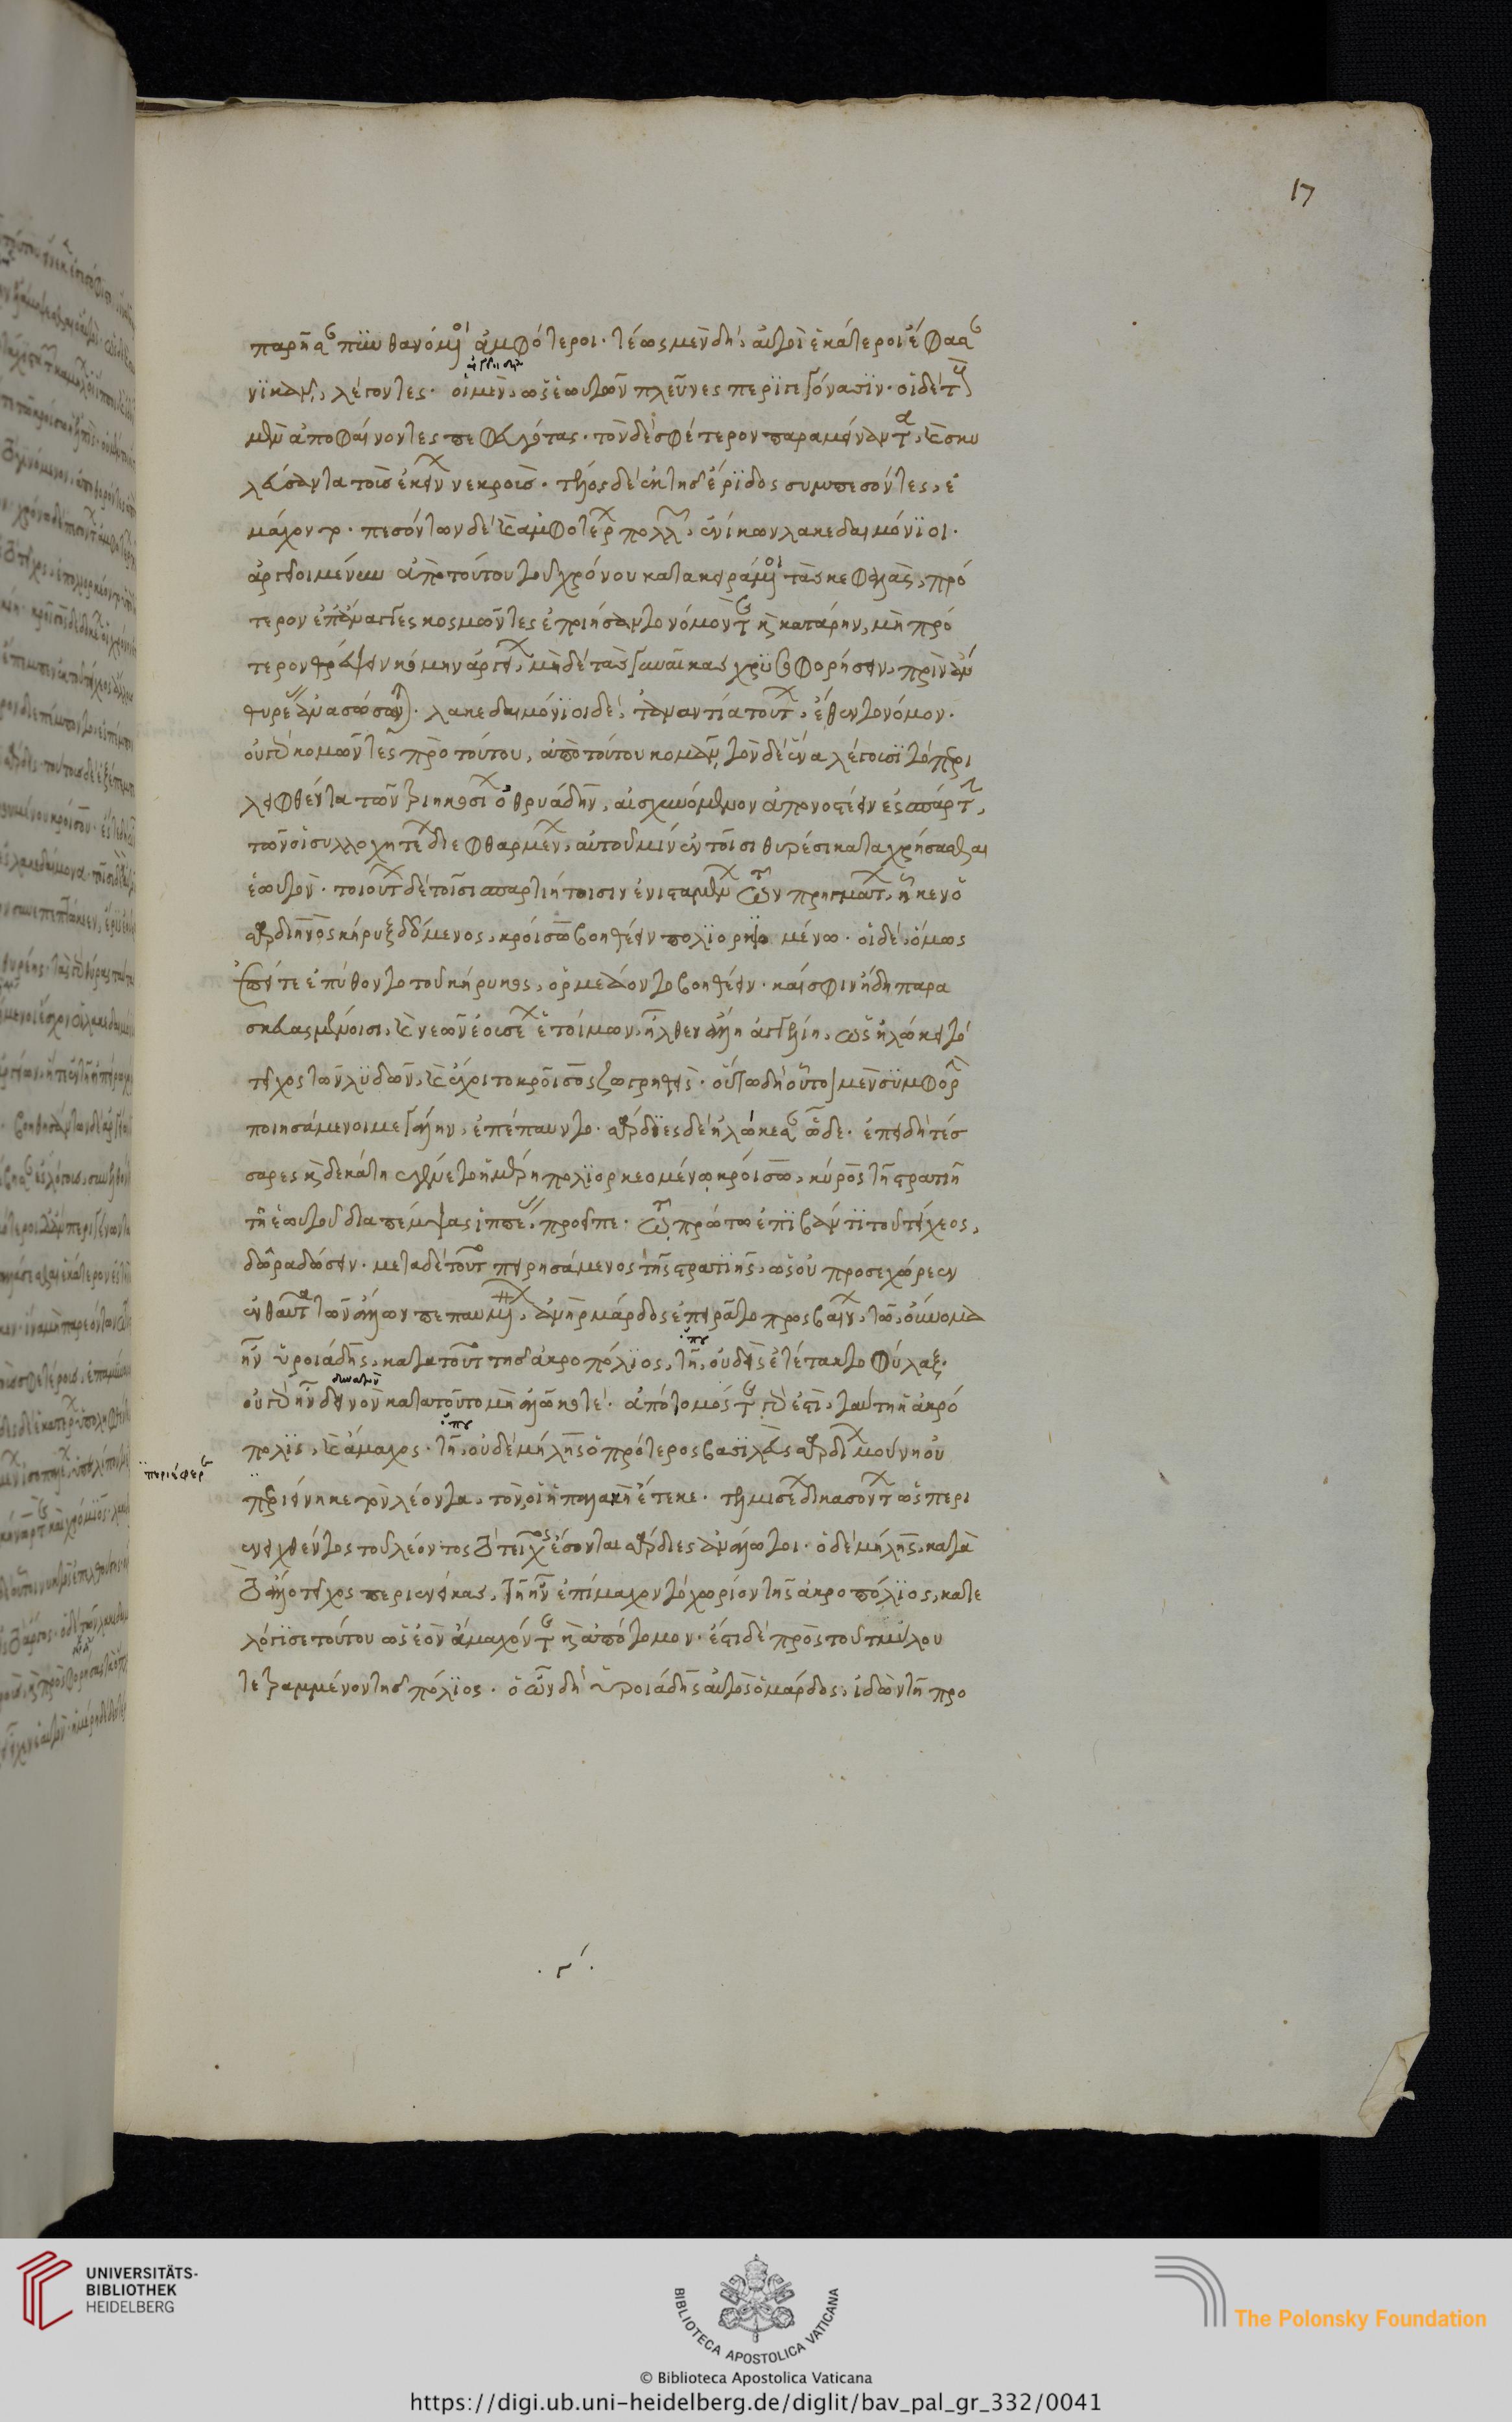 παρῆσαν πυνθανόμενοι ἀμφότεροι· τέως μὲν δὴ, αὐτοὶ ἑκάτεροι ἔφασαν
νϊκᾶν, λέγοντες· οἱ μὲν, ὡς ἑωυτῶν πλεῦνες περϊγεγόνασϊν· οἱ δὲ τοὺς
μὲν ἀποφαίνοντες πεφευγότας· τὸν δὲ σφέτερον παραμείναντα, καὶ σκυ
λεύσαντα τοὺς ἐκείνων νεκροὺς· τέλος δὲ ἐκ τῆς ἔρϊδος συμπεσόντες, ἐ
μάχοντο· πεσόντων δὲ καὶ ἀμφοτέρων πολλῶν, ἐνίκων λακεδαιμόνϊοι·
ἀργεῖοι μέν νυν ἀπὸ τούτου τοῦ χρόνου κατακειράμενοι τὰς κεφαλὰς, πρό
τερον ἐπάναγκες κομῶντες ἐποιήσαντο νόμον τε καὶ κατάρην, μὴ πρό
τερον θρέψειν κόμην ἀργείων, μηδὲ τὰς γυναῖκας χρυσοφορήσειν, πρὶν ἂν
θυρέας ἀνασώσωνται· λακεδαιμόνϊοι δὲ, τὰ ἐναντία τούτων, ἔθεντο νόμον·
οὐ γὰρ κομῶντες πρὸ τούτου, ἀπὸ τούτου κομᾶν, τὸν δὲ ἕνα λέγουσϊ τὸν περι
λειφθέντα τῶν τριηκοσίων ὀθρυάδην, αἰσχυνόμενον ἀπονοστέειν ἐς σπάρτην,
τῶν οἱ συλλοχητέων διεφθαρμένων, αὐτοῦ μιν ἐν τοῖσι θυρέσι καταχρήσασθαι
ἑωυτὸν· τοιούτων δὲ τοῖσι σπαρτιήτοισιν ἐνισταμένων τῶν πρηγμάτων, ἧκεν ὁ
σαρδιηνὸς κήρυξ δεόμενος, κροίσω βοηθέειν πολϊορκεομένω· οἱ δὲ, ὅμως
ἐπεί τε ἐπύθοντο τοῦ κήρυκος, ὁρμέατο βοηθέειν· καί σφιν ἤδη παρα
σκευασμένοισι, καὶ νεῶν ἐουσέων ἑτοίμων, ἦλθεν ἄλλη ἀγγελίη, ὡς ἡλώκει τὸ
τεῖχος τῶν λϋδῶν, καὶ ἔχοιτο κροῖσος ζωγρηθεὶς· οὕτω δὴ οὗτοι μὲν σϋμφορὰν
ποιησάμενοι μεγάλην, ἐπέπαυντο· σάρδϊες δὲ ἡλώκεσαν ὧδε· ἐπειδὴ τέσ
σαρες καὶ δεκάτη ἐγένετο ἡμέρη πολϊορκεομένω κροίσω, κῦρος τῆ στρατιῆ
τῆ ἑωυτοῦ διαπέμψας ἱππέας, προεῖπε· τῶ πρώτω ἐπϊβάντϊ τοῦ τείχεος,
δῶρα δώσειν· μετὰ δὲ τοῦτο πειρησάμενος τῆς στρατϊῆς, ὡς οὐ προσεχώρεεν
ἐνθαῦτα τῶν ἄλλων πεπαυμένων, ἀνὴρ μάρδος ἐπειρᾶτο προσβαίνων, τῶ, οὔνομα
ἦν ὑροιάδης, κατὰ τοῦτο τῆς ἀκροπόλϊος, τῆ, οὐδεὶς ἐτέτακτο φύλαξ·
οὐ γὰρ ἦν δεινὸν κατὰ τοῦτο μὴ ἁλῶ κοτὲ· ἀπότομός τε γάρ ἐστι, ταύτη ἡ ἀκρό
πολϊς, καὶ ἄμαχος· τῆ, οὐδὲ μήλης ὁ πρότερος βασϊλεὺς σαρδίων μούνη οὐ
περιήνηκε τὸν λέοντα, τὸν οἱ ἡ παλλακὴ ἔτεκε· τελμισέων δικασάντων ὡς περι
ενειχθέντος τοῦ λέοντος τὸ τεῖχος ἔσονται σάρδιες ἀνάλωτοι· ὁ δὲ μήλης, κατὰ
τὸ ἄλλο τεῖχος περιενείκας, τῆ ἦν ἐπίμαχον τὸ χωρίον τῆς ἀκροπόλϊος, κατε
λόγϊσε τούτου ὡς ἐὸν ἄμαχόν τε καὶ ἀπότομον· ἔστι δὲ πρὸς τοῦ τμώλου
τετραμμένον τῆς πόλϊος· ὁ ὦν δὴ ὑροιάδης αὐτὸς ὁ μάρδος, ἰδὼν τῆ προ
17
ὅπου
ὅπου
δυνατὸν
UNIVERSITÄTS-
BIBLIOTHEK
HEIDELBERG
BIBLIOTECA APOSTOLICA VATICANA
© Biblioteca Apostolica Vaticana
The Polonsky Foundation
https://digi.ub.uni-heidelberg.de/diglit/bav_pal_gr_332/0041